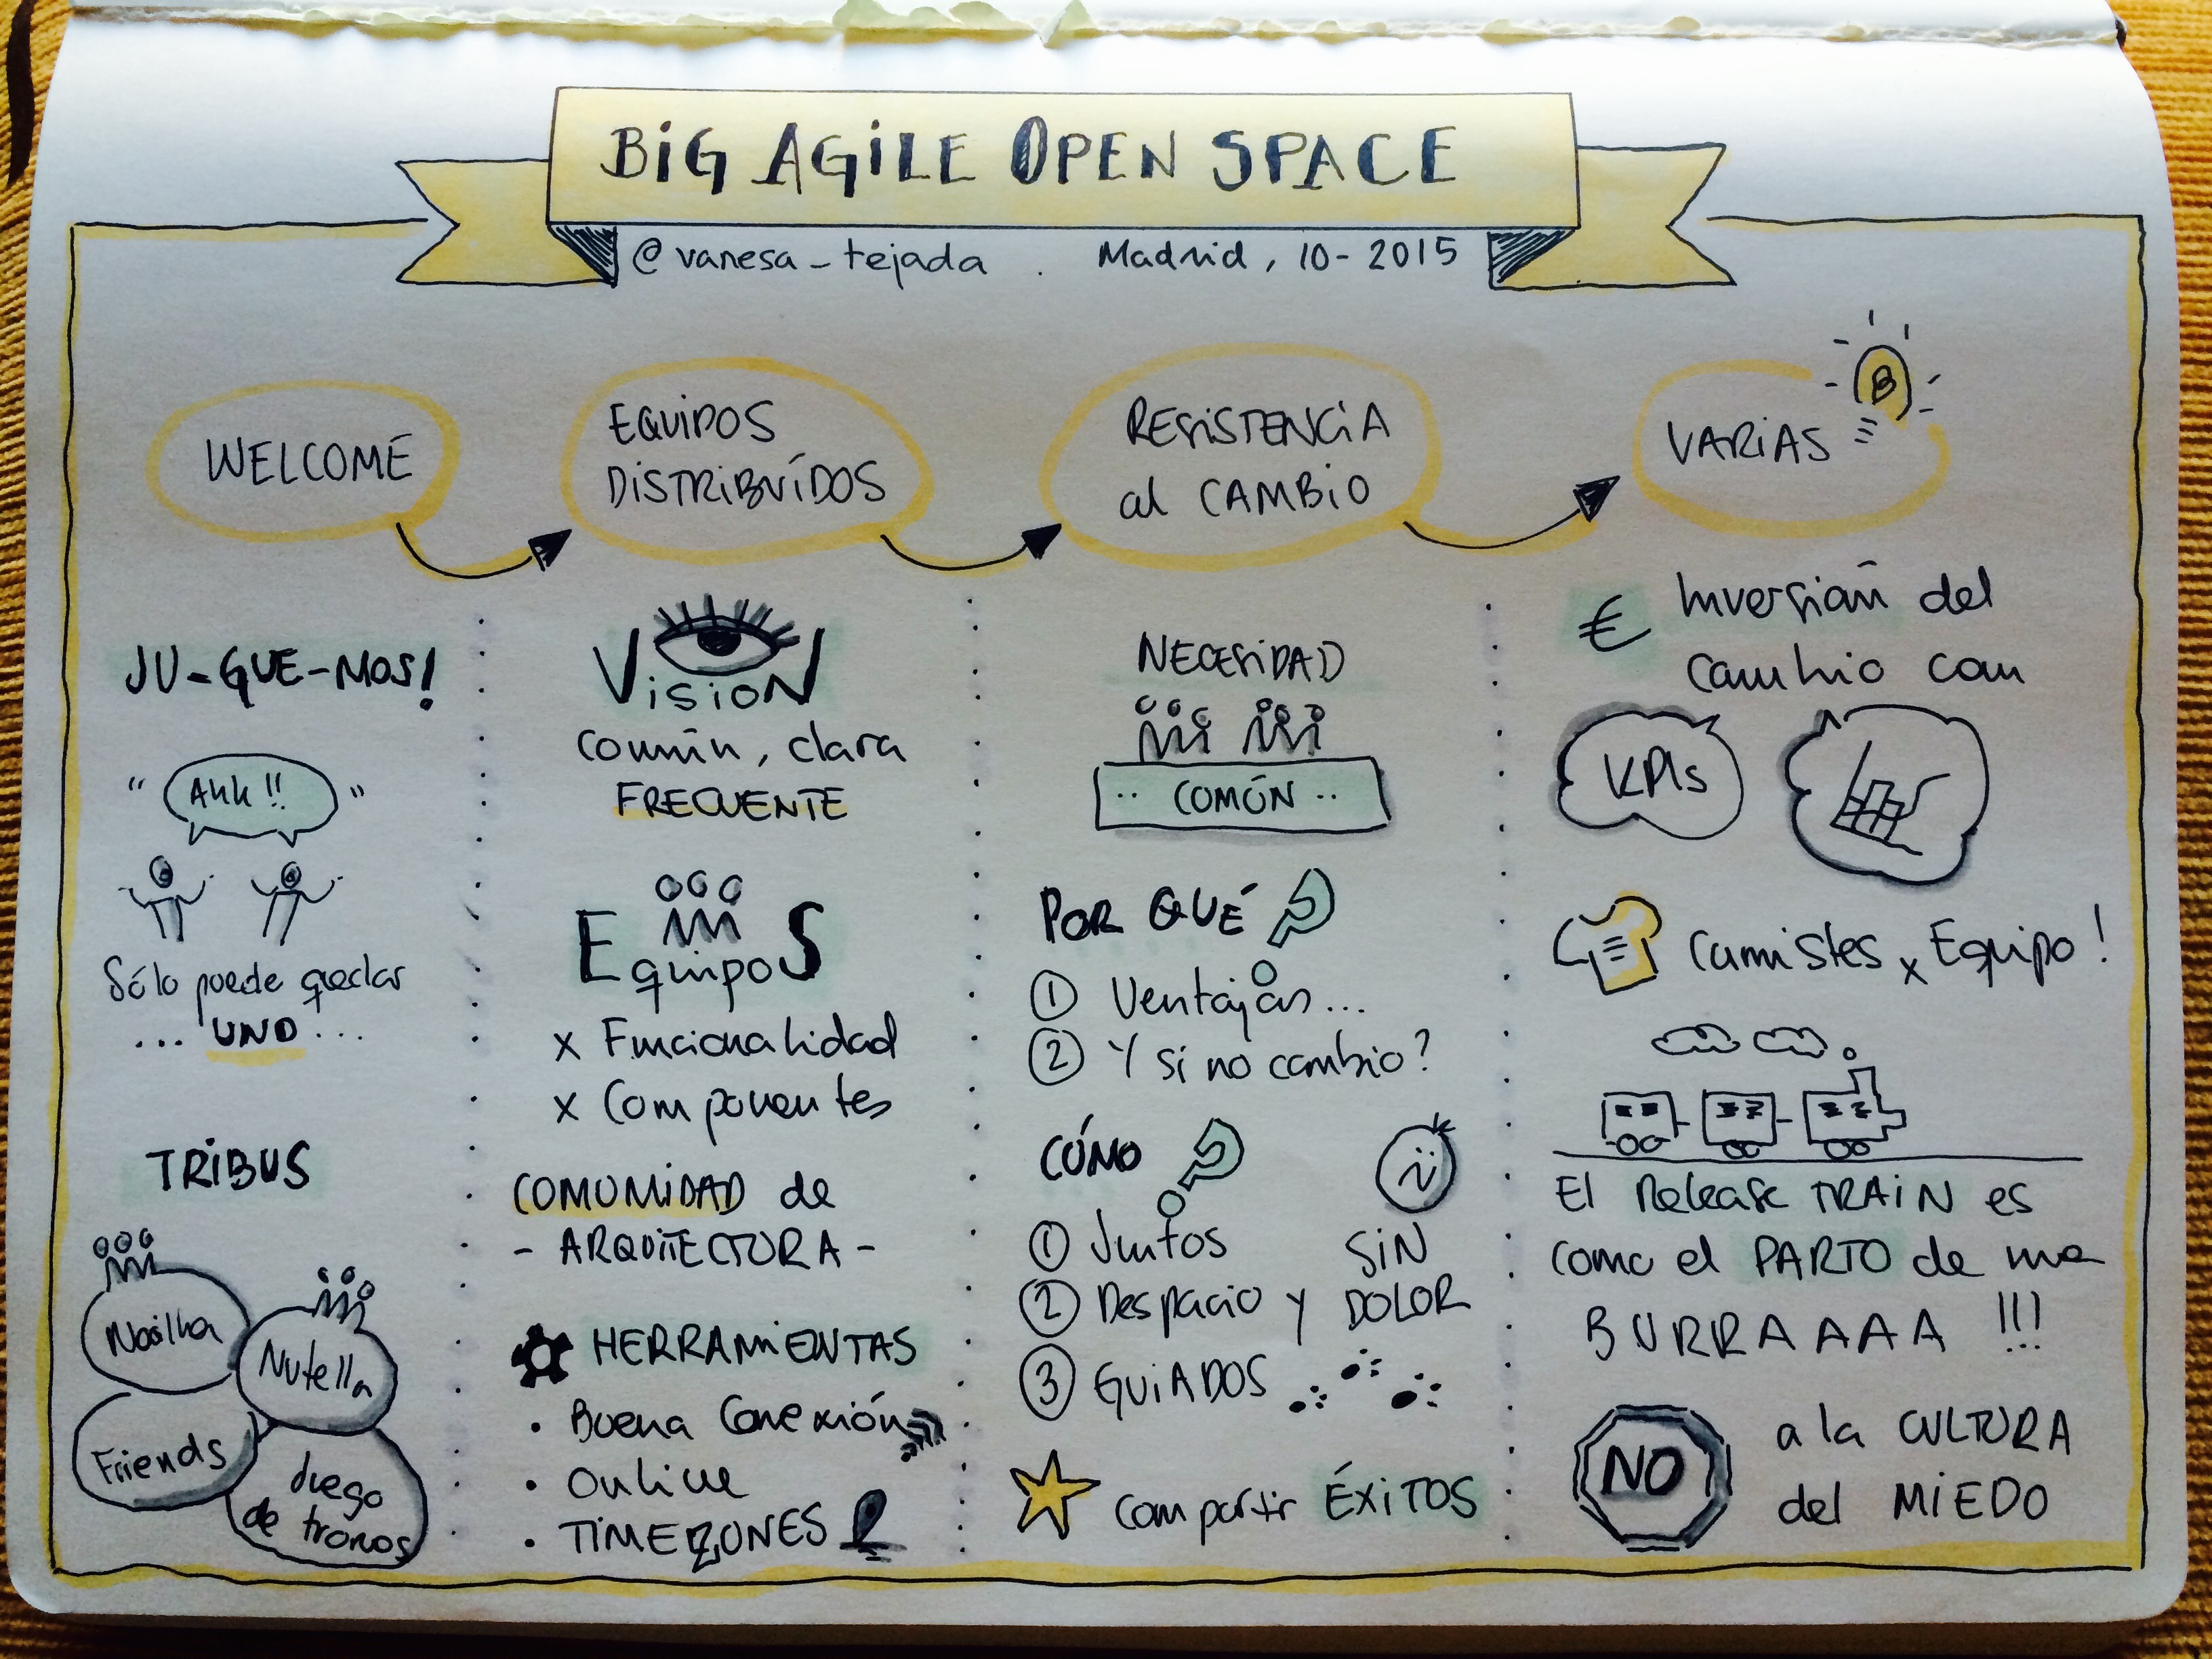 BiG AGiLE OPEN SPACE
@vanesa_tejada . Madrid, 10-2015
WELCOME
JU-GUE-MOS!
" Ahh!! "
Sólo puede quedar
... UNO ...
TRiBUS
Nocilla
Nutella
Friends
Juego
de tronos
EQUiPOS
DiSTRiBUíDOS
VisioN
común, clara
FRECUENTE
EquipoS
x Funcionalidad
x Componentes
COMUNiDAD de
- ARQUiTECTURA -
HERRAMiENTAS
• Buena Conexión
• Online
• TiMEZONES
RESiSTENCiA
al CAMBiO
NECESiDAD
.. COMÚN ..
POR QUÉ ?
1 Ventajas...
2 Y si no cambio?
CÓMO ?
1 Juntos
2 Despacio y
SiN
DOLOR
3 GUiADOS
compartir ÉXiTOS
VARiAS
€ Inversión del
cambio con
KPIs
Camisetas x Equipo!
El Release TRAiN es
como el PARTO de una
BURRAAAA !!!
NO
a la CULTURA
del MiEDO